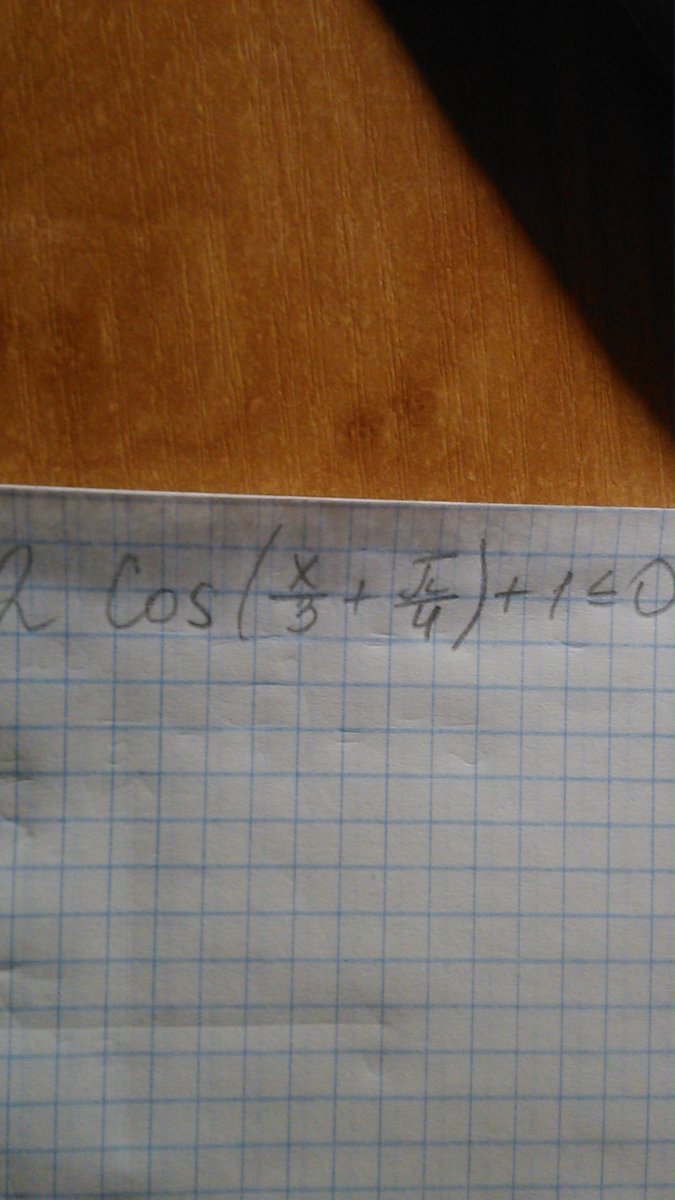 2 Cos(x/3 + π/4) + 1 ≤ 0